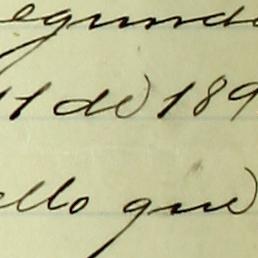 egundo
11 de 189
ello que